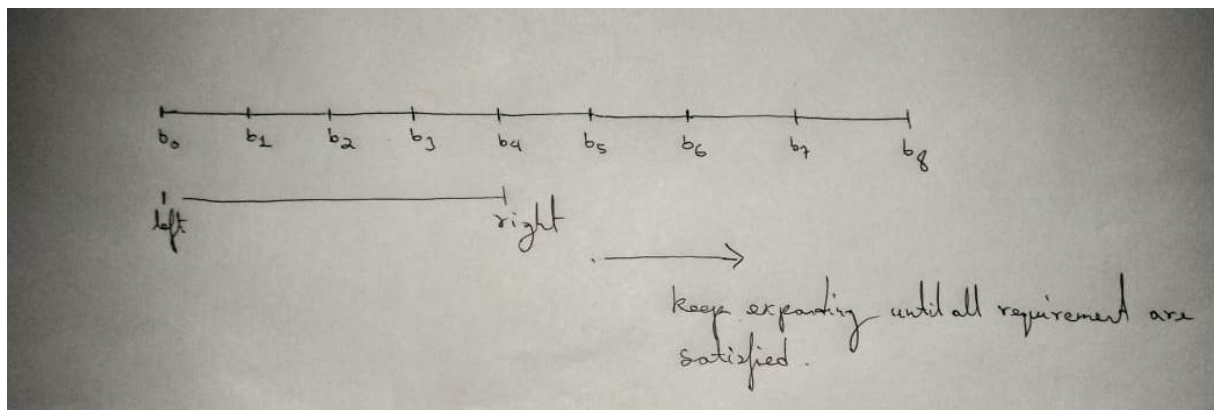 b0 b1 b2 b3 b4 b5 b6 b7 b8
left right
keep expanding until all requirement are
satisfied.